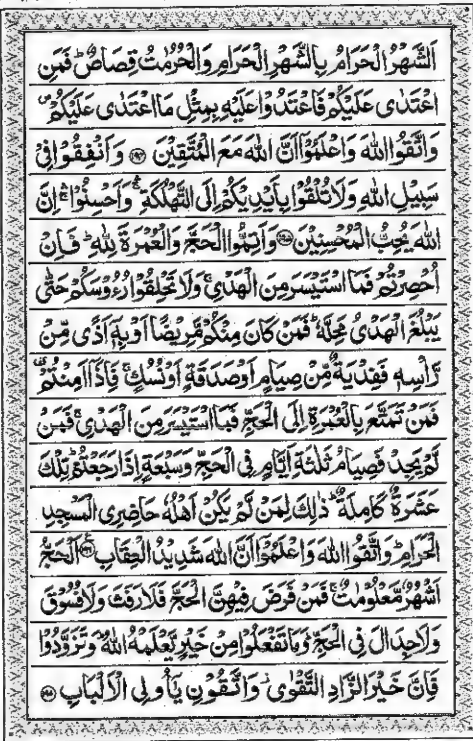 اَلشَّهْرُ الْحَرَامُ بِالشَّهْرِ الْحَرَامِ وَالْحُرُمٰتُ قِصَاصٌ ؕ فَمَنِ
اعْتَدٰى عَلَيْكُمْ فَاعْتَدُوْا عَلَيْهِ بِمِثْلِ مَا اعْتَدٰى عَلَيْكُمْ ۪
وَاتَّقُوا اللّٰهَ وَاعْلَمُوْۤا اَنَّ اللّٰهَ مَعَ الْمُتَّقِيْنَ ﴿۱۹۴﴾ وَاَنْفِقُوْا فِيْ
سَبِيْلِ اللّٰهِ وَلَا تُلْقُوْا بِاَيْدِيْكُمْ اِلَى التَّهْلُكَةِ ۛۚ وَاَحْسِنُوْا ۛۚ اِنَّ
اللّٰهَ يُحِبُّ الْمُحْسِنِيْنَ ﴿۱۹۵﴾ وَاَتِمُّوا الْحَجَّ وَالْعُمْرَةَ لِلّٰهِ ؕ فَاِنْ
اُحْصِرْتُمْ فَمَا اسْتَيْسَرَ مِنَ الْهَدْيِ ۚ وَلَا تَحْلِقُوْا رُءُوْسَكُمْ حَتّٰى
يَبْلُغَ الْهَدْيُ مَحِلَّهٗ ؕ فَمَنْ كَانَ مِنْكُمْ مَّرِيْضًا اَوْ بِهٖۤ اَذًى مِّنْ
رَّاْسِهٖ فَفِدْيَةٌ مِّنْ صِيَامٍ اَوْ صَدَقَةٍ اَوْ نُسُكٍ ۚ فَاِذَاۤ اَمِنْتُمْ ۥ
فَمَنْ تَمَتَّعَ بِالْعُمْرَةِ اِلَى الْحَجِّ فَمَا اسْتَيْسَرَ مِنَ الْهَدْيِ ۚ فَمَنْ
لَّمْ يَجِدْ فَصِيَامُ ثَلٰثَةِ اَيَّامٍ فِي الْحَجِّ وَسَبْعَةٍ اِذَا رَجَعْتُمْ ؕ تِلْكَ
عَشَرَةٌ كَامِلَةٌ ؕ ذٰلِكَ لِمَنْ لَّمْ يَكُنْ اَهْلُهٗ حَاضِرِى الْمَسْجِدِ
الْحَرَامِ ؕ وَاتَّقُوا اللّٰهَ وَاعْلَمُوْۤا اَنَّ اللّٰهَ شَدِيْدُ الْعِقَابِ ﴿۱۹۶﴾ اَلْحَجُّ
اَشْهُرٌ مَّعْلُوْمٰتٌ ۚ فَمَنْ فَرَضَ فِيْهِنَّ الْحَجَّ فَلَا رَفَثَ وَلَا فُسُوْقَ
وَلَا جِدَالَ فِي الْحَجِّ ؕ وَمَا تَفْعَلُوْا مِنْ خَيْرٍ يَّعْلَمْهُ اللّٰهُ ؕ وَتَزَوَّدُوْا
فَاِنَّ خَيْرَ الزَّادِ التَّقْوٰى ۚ وَاتَّقُوْنِ يٰۤاُولِى الْاَلْبَابِ ﴿۱۹۷﴾